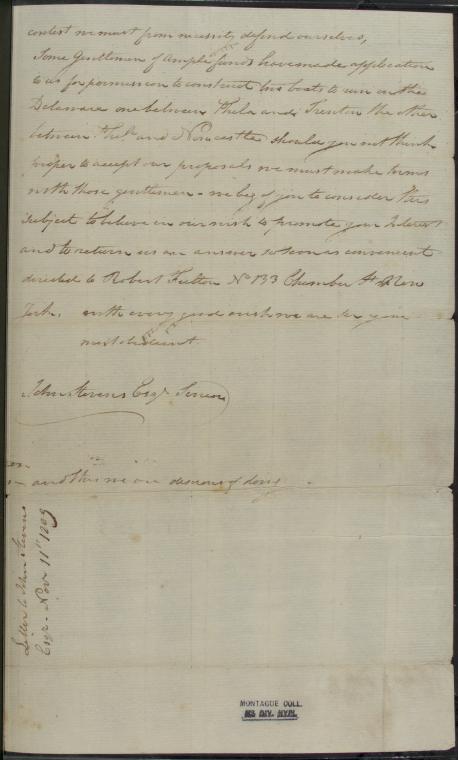 contest we must from necessity defend ourselves,
Some Gentlemen of ample funds have made application
to us for permission to construct two boats to run on the
Delaware one between Phila and Trenton the other
between Phila and Newcastle should you not think
proper to accept our proposals we must make terms
with those gentlemen - we beg of you to consider this
subject to believe in our wish to promote your Interest
and to return us an answer so soon as convenient
directed to Robert Fulton No 133 Chamber St New
York. with every good wish we are Sir your
most obedient
John Stevens Esqr Senior
and this we are desirous of doing
Letter to John Stevens
Esqr - Novr 11th 1809
MONTAGUE COLL.
MS. DIV. NYPL.